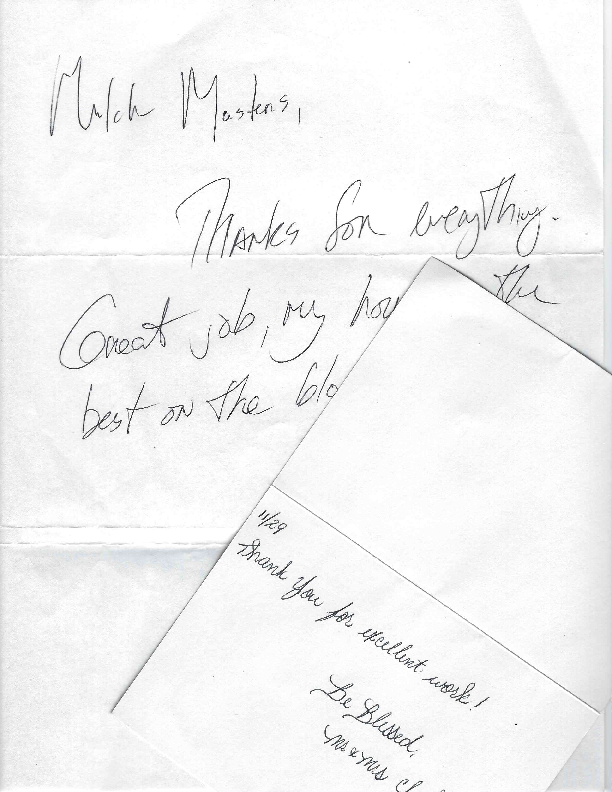 Mulch Masters,
Thanks for everything.
Great job, my the
best on the
11/29
Thank You for excellent work!
Be Blessed,
Mr & Mrs